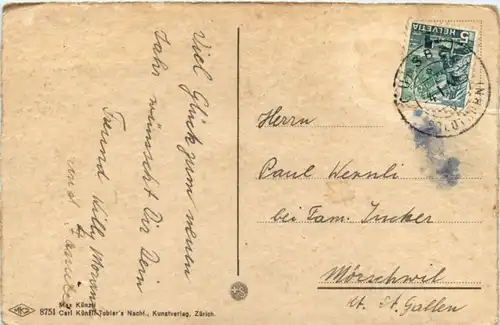 Viel Glück zum neuen
Jahr wünscht Dir Dein
Freund Willy
und Familie
HELVETIA
5
(SOLOTHURN)
Herrn
Paul Wernli
bei Fam. Zucker
Mörschwil
Kt. St. Gallen
Max Künzli
8751 Carl Künzli-Tobler's Nachf., Kunstverlag, Zürich.